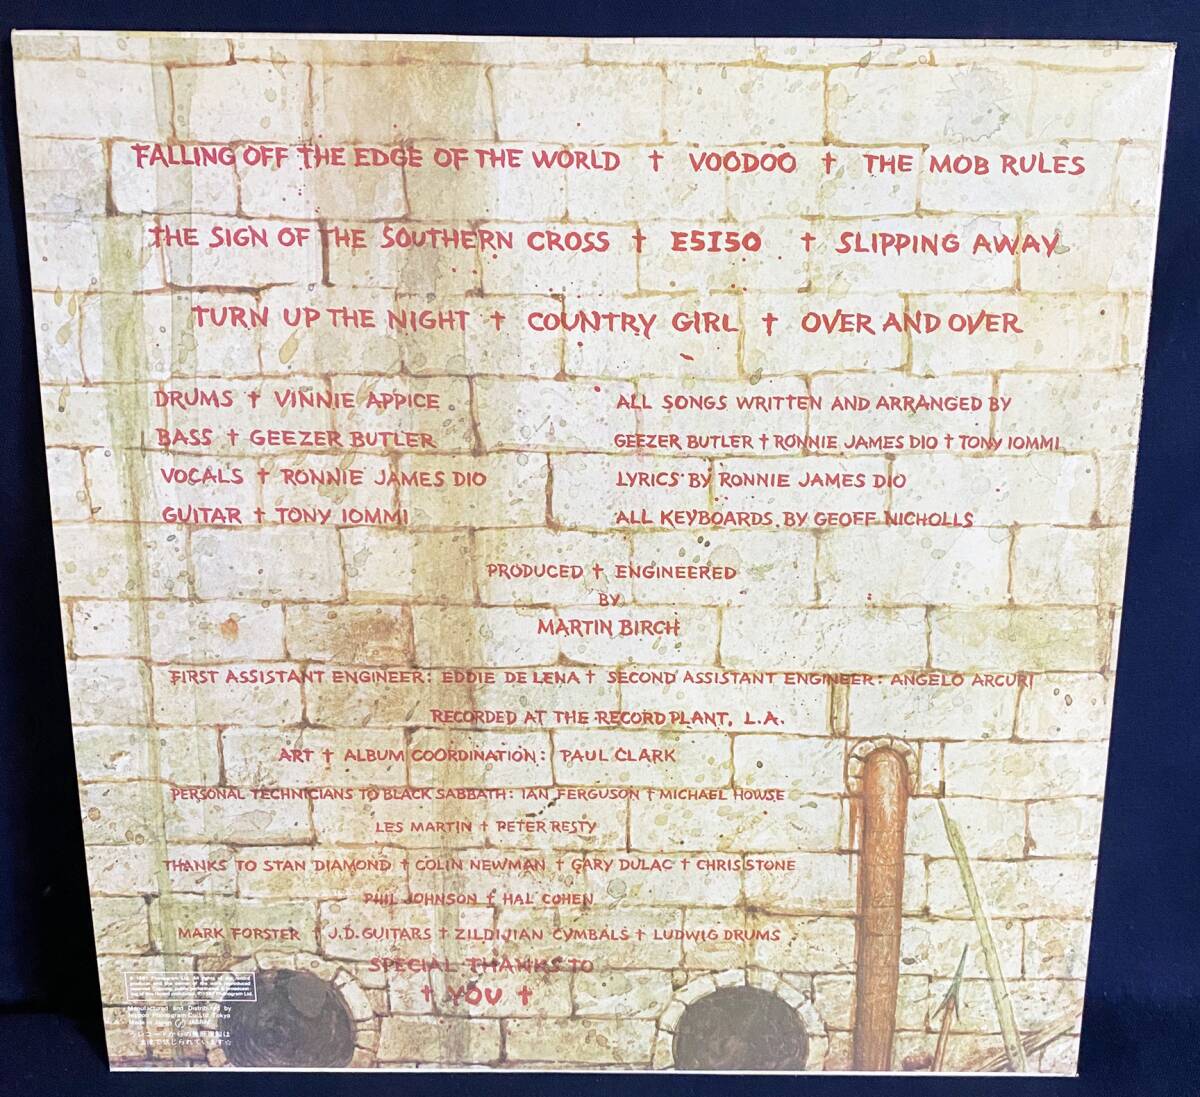 FALLING OFF THE EDGE OF THE WORLD † VOODOO † THE MOB RULES
THE SIGN OF THE SOUTHERN CROSS † E5I5O † SLIPPING AWAY
TURN UP THE NIGHT † COUNTRY GIRL † OVER AND OVER
DRUMS † VINNIE APPICE
BASS † GEEZER BUTLER
VOCALS † RONNIE JAMES DIO
GUITAR † TONY IOMMI
ALL SONGS WRITTEN AND ARRANGED BY
GEEZER BUTLER † RONNIE JAMES DIO † TONY IOMMI
LYRICS BY RONNIE JAMES DIO
ALL KEYBOARDS BY GEOFF NICHOLLS
PRODUCED † ENGINEERED
BY
MARTIN BIRCH
FIRST ASSISTANT ENGINEER: EDDIE DE LENA † SECOND ASSISTANT ENGINEER: ANGELO ARCURI
RECORDED AT THE RECORD PLANT, L.A.
ART † ALBUM COORDINATION: PAUL CLARK
PERSONAL TECHNICIANS TO BLACK SABBATH: IAN FERGUSON † MICHAEL HOWSE
LES MARTIN † PETER RESTY
THANKS TO STAN DIAMOND † COLIN NEWMAN † GARY DULAC † CHRIS STONE
PHIL JOHNSON † HAL COHEN
MARK FORSTER † J.D. GUITARS † ZILDIJIAN CYMBALS † LUDWIG DRUMS
SPECIAL THANKS TO
† YOU †
Manufactured and Distributed by
Nippon Phonogram Co., Ltd. Tokyo
Made in Japan